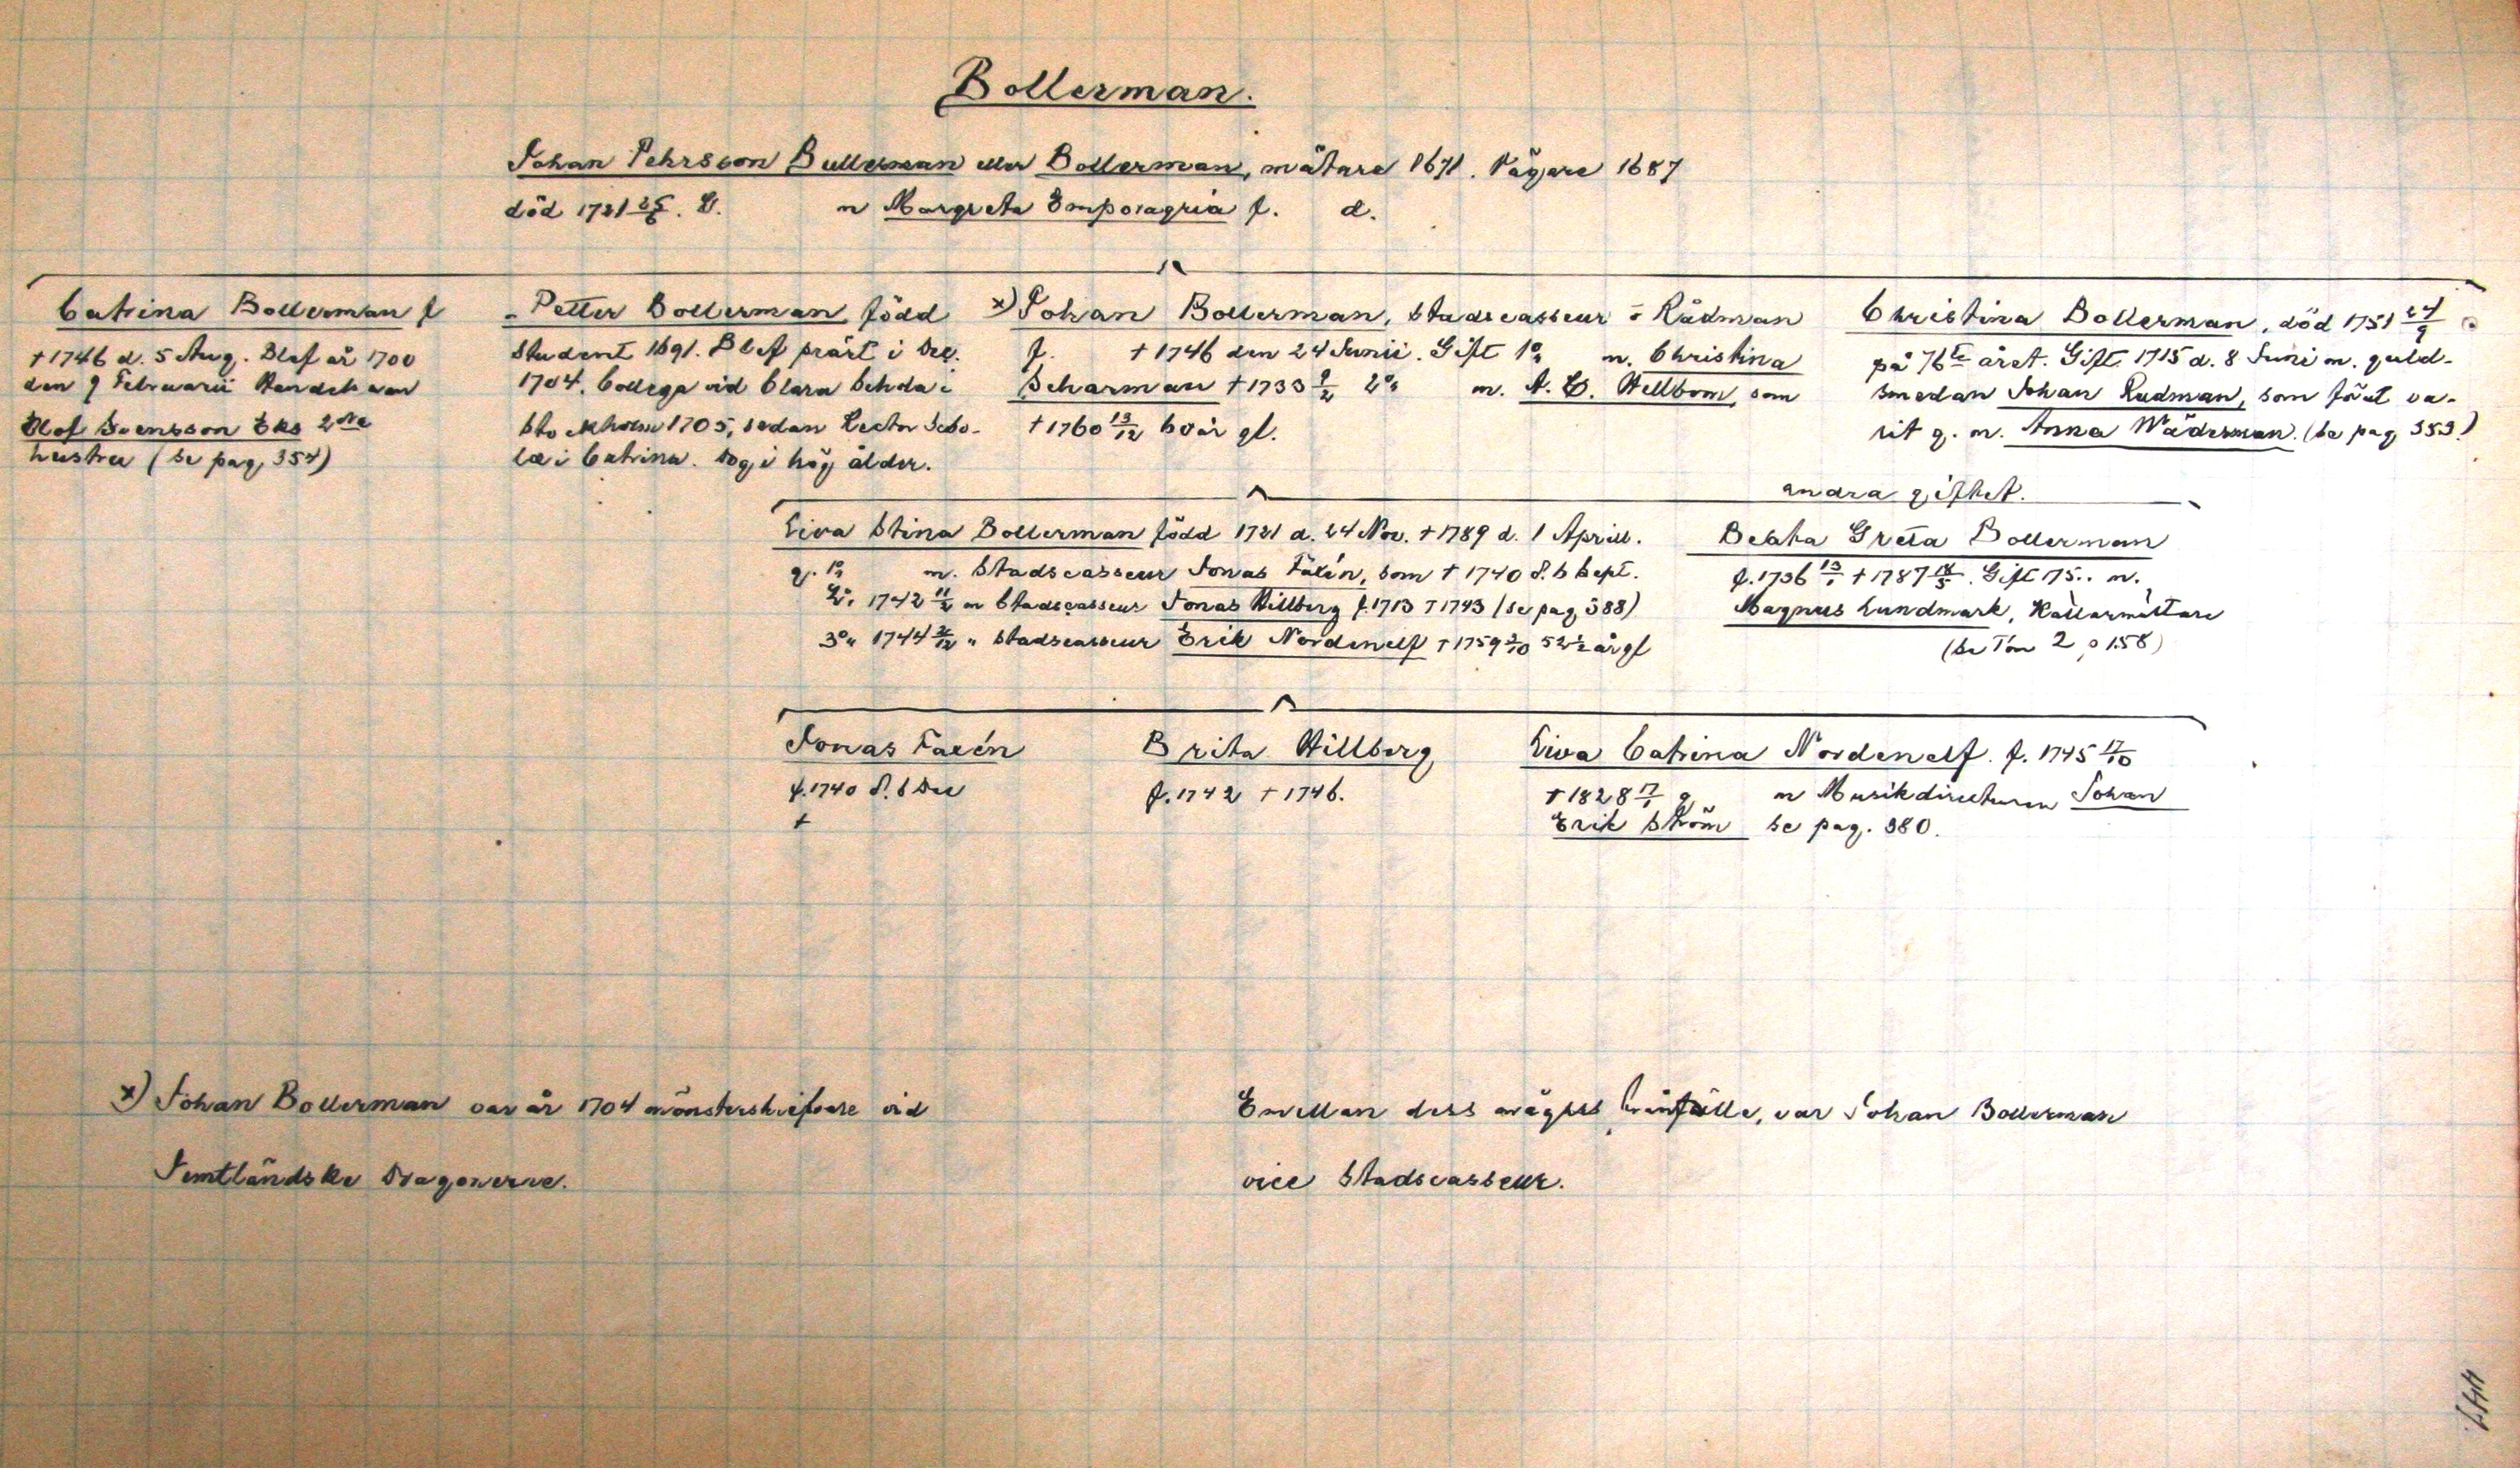 Bollerman.
Johan Pehrsson Bullerman eller Bollerman, mätare 1671. Vägare 1687
död 1721 25/6. G. m Margreta Emporagria f. d.
Catrina Bollerman f
† 1746 d. 5 Aug. Blef år 1700
den 9 Februarii Handelsman
Olof Svensson Eks 2dra
hustru (se pag. 354)
Petter Bollerman född
Student 1691. Blef präst i Dec.
1704. Collega vid Clara Schola i
Stockholm 1705, sedan Rector Scho-
læ i Catrina. Dog i hög ålder.
x) Johan Bollerman, Stadscasseur o Rådman
f. † 1746 den 24 Junii. Gift 1o m. Christina
Scharman † 1733 9/2 2o m. A. C. Hellbom, som
† 1760 13/12 60 år gl.
Christina Bollerman, död 1751 24/9
på 76te året. Gift 1715 d. 8 Juni m. guld-
smeden Johan Rudman, som förut va-
rit g. m. Anna Wäderman. (se pag 353)
andra giftet.
Eva Stina Bollerman född 1721 d. 24 Nov. † 1789 d. 1 Aprill.
g. 1o m. Stadscasseur Jonas Faxén, som † 1740 d. 6 Sept.
2o 1742 11/2 m Stadscasseur Jonas Hillberg f. 1713 † 1743 (se pag 388)
3o 1744 2/12 " Stadscasseur Erik Nordenelf † 1759 2/10 52 1/2 år gl
Beata Greta Bollerman
f. 1736 13/1 † 1787 18/5. Gift 175.. m.
Magnus Lundmark, Källarmästare
(se Tom 2 p 158)
Jonas Faxén
f. 1740 d. 6 Dec
†
Brita Hillberg
f. 1742 † 1746.
Eva Catrina Nordenelf. f. 1745 17/10
† 1828 17/1 g m Musikdirecteuren Johan
Erik Ström se pag. 380.
x) Johan Bollerman var år 1704 mönsterskrifvare vid
Jemtländske Dragonerne.
Emellan dess frånfälle, var Johan Bollerman
vice Stadscasseur.
447.